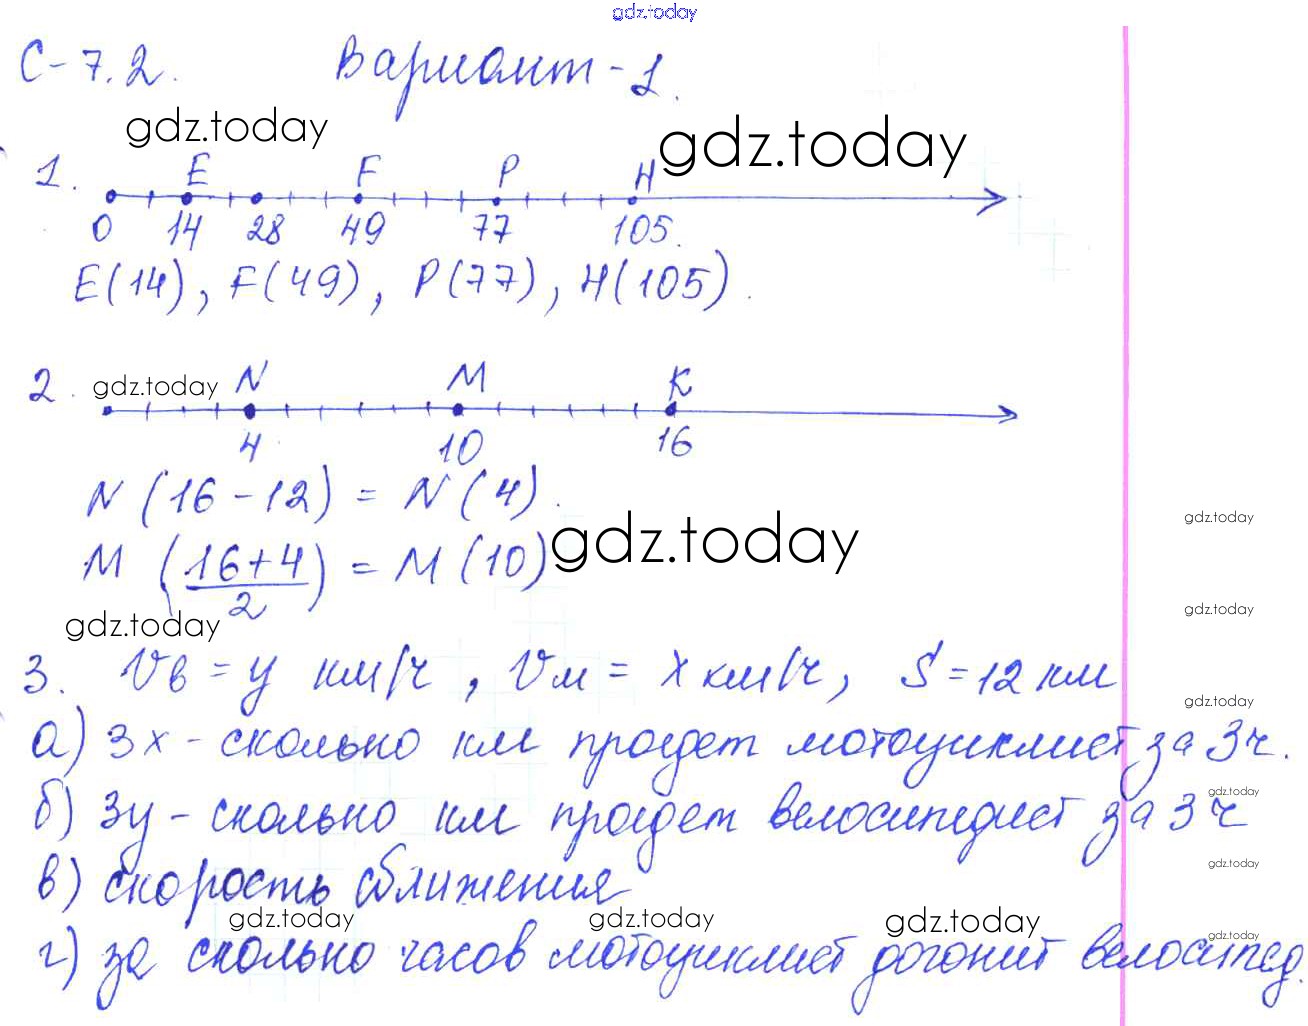 gdz.today
С-7.2. Вариант-1.
gdz.today gdz.today
1. E F P H
0 14 28 49 77 105.
E(14), F(49), P(77), H(105).
2. gdz.today N M K
4 10 16
N(16-12) = N(4).
gdz.today gdz.today
M (16+4/2) = M(10)
gdz.today gdz.today
3. Vв = y км/ч, Vм = x км/ч, S = 12 км
gdz.today
а) 3x - сколько км проедет мотоциклист за 3ч.
gdz.today
б) 3y - сколько км проедет велосипедист за 3ч
gdz.today
в) скорость сближения
gdz.today gdz.today gdz.today gdz.today
г) за сколько часов мотоциклист догонит велосипед.